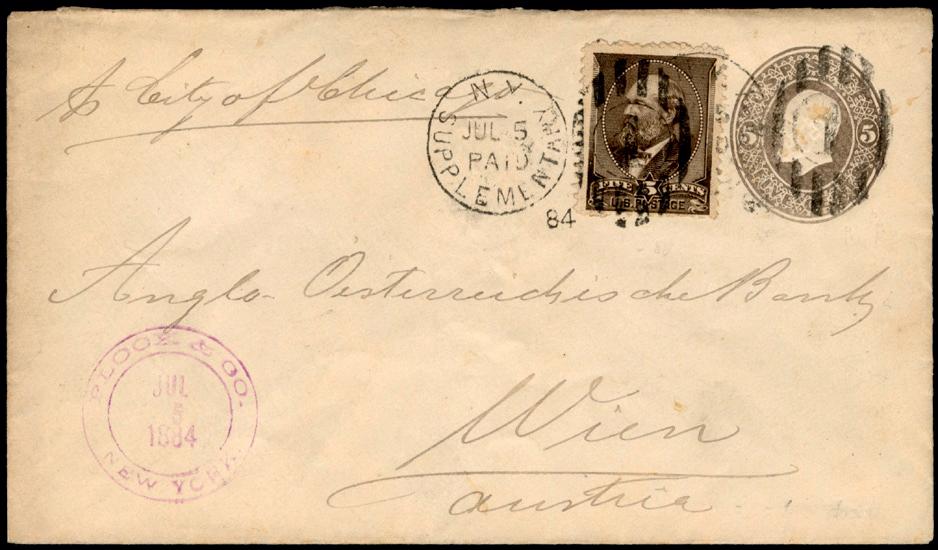 City of Chicago
N.Y.
SUPPLEMENTARY
JUL 5
PAID
84
FIVE 5 CENTS
U.S. POSTAGE
5 5
Anglo-Oesterreichische Bank
Wien
Austria
PLOCK & CO.
JUL
5
1884
NEW YORK